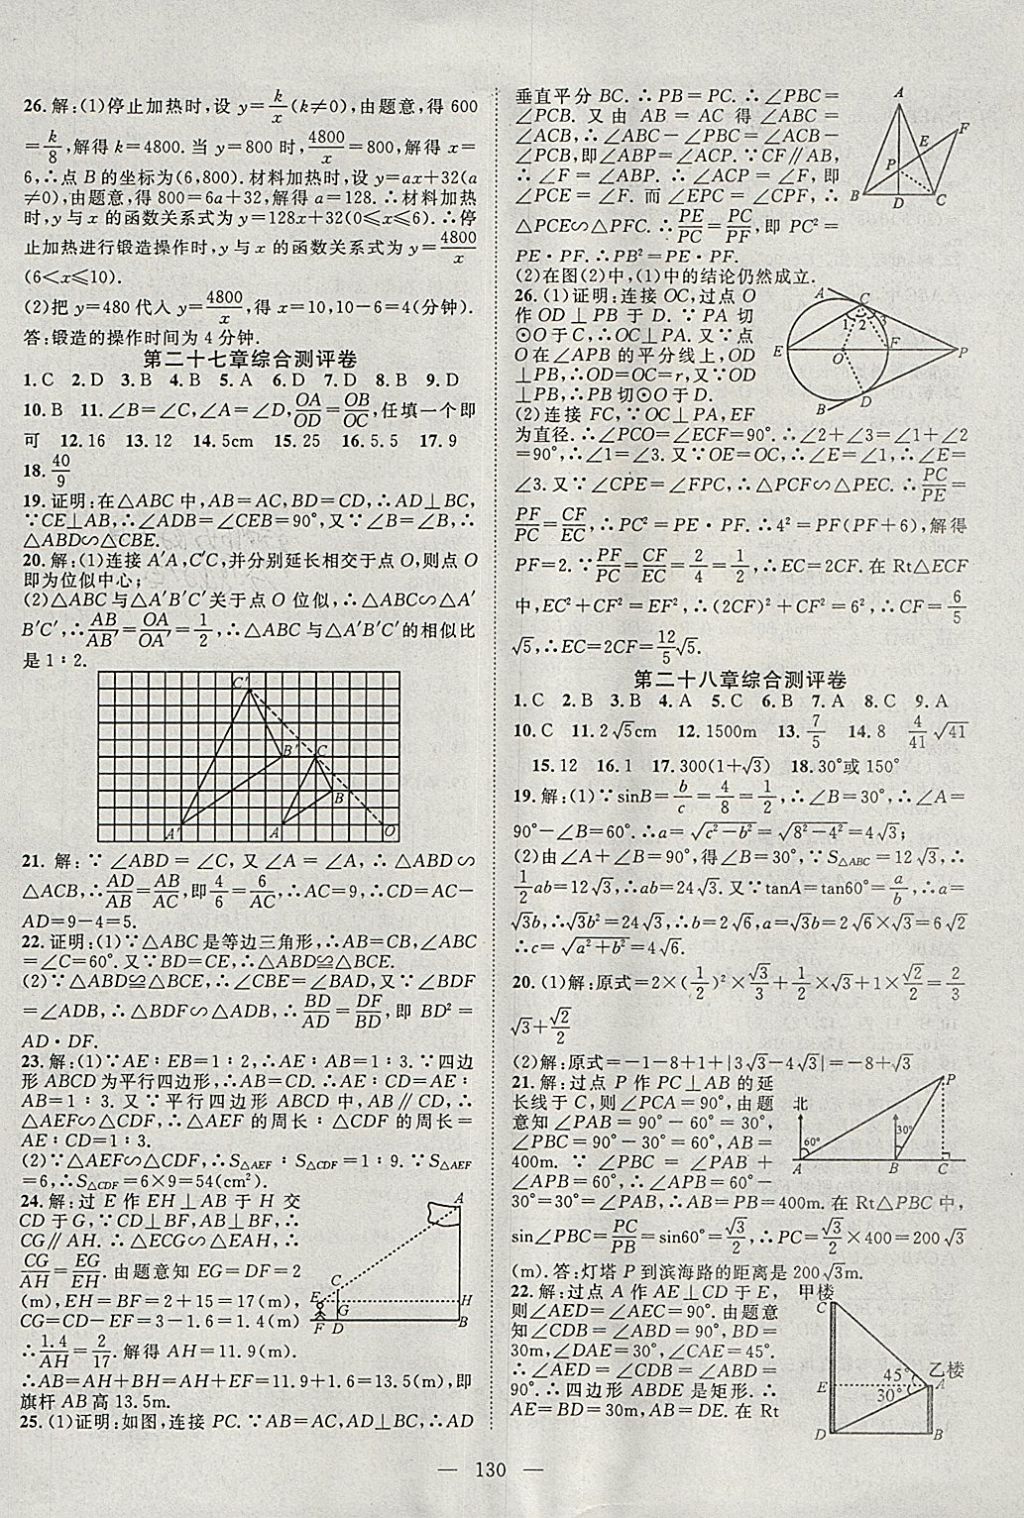 26.解:(1)停止加热时,设 y=k/x(k≠0),由题意,得 600
=k/8,解得 k=4800.当 y=800 时,4800/x=800,解得 x=
6,∴点 B 的坐标为(6,800).材料加热时,设 y=ax+32(a
≠0),由题意,得 800=6a+32,解得 a=128.∴材料加热
时,y与x的函数关系式为 y=128x+32(0≤x≤6).∴停
止加热进行锻造操作时,y与x的函数关系式为 y=4800/x
(6<x≤10).
(2)把 y=480 代入 y=4800/x,得 x=10,10-6=4(分钟).
答:锻造的操作时间为 4 分钟.
第二十七章综合测评卷
1.C 2.D 3.B 4.B 5.A 6.D 7.D 8.B 9.D
10.B 11.∠B=∠C,∠A=∠D,OA/OD=OB/OC,任填一个即
可 12.16 13.12 14.5cm 15.25 16.5.5 17.9
18.40/9
19.证明:在△ABC中,AB=AC,BD=CD,∴AD⊥BC,
∵CE⊥AB,∴∠ADB=∠CEB=90°,又∵∠B=∠B,∴
△ABD∽△CBE.
20.解:(1)连接 A′A,C′C,并分别延长相交于点 O,则点 O
即为位似中心;
(2)△ABC与△A′B′C′关于点 O 位似,∴△ABC∽△A′
B′C′,∴AB/A′B′=OA/OA′=1/2,∴△ABC与△A′B′C′的相似比
是 1∶2.
C′
B′ C
B
A′ A O
21.解:∵∠ABD=∠C,又∠A=∠A,∴△ABD∽
△ACB,∴AD/AB=AB/AC,即4/6=6/AC,∴AC=9,∴CD=AC-
AD=9-4=5.
22.证明:(1)∵△ABC是等边三角形,∴AB=CB,∠ABC
=∠C=60°.又∵BD=CE,∴△ABD≌△BCE.
(2)∵△ABD≌△BCE,∴∠CBE=∠BAD,又∵∠BDF
=∠ADB,∴△BDF∽△ADB,∴BD/AD=DF/BD,即 BD²=
AD·DF.
23.解:(1)∵AE∶EB=1∶2,∴AE∶AB=1∶3.∵四边
形 ABCD 为平行四边形,∴AB=CD.∴AE∶CD=AE∶
AB=1∶3.又∵平行四边形 ABCD 中,AB∥CD,∴
△AEF∽△CDF,∴△AEF 的周长∶△CDF 的周长=
AE∶CD=1∶3.
(2)∵△AEF∽△CDF,∴S△AEF∶S△CDF=1∶9.∵S△AEF
=6,∴S△CDF=6×9=54(cm²).
24.解:过 E 作 EH⊥AB 于 H 交
CD于G,∵CD⊥BF,AB⊥BF,∴
CG∥AH.∴△ECG∽△EAH,∴
CG/AH=EG/EH.由题意知 EG=DF=2
(m),EH=BF=2+15=17(m),
CG=CD-EF=3-1.6=1.4(m)
∴1.4/AH=2/17.解得 AH=11.9(m).
∴AB=AH+BH=AH+EF=11.9+1.6=13.5(m),即
旗杆 AB 高 13.5m.
A
C
E G H
F D B
25.(1)证明:如图,连接 PC.∵AB=AC,AD⊥BC,∴AD
垂直平分 BC.∴PB=PC.∴∠PBC=
∠PCB.又由 AB=AC 得 ∠ABC=
∠ACB,∴∠ABC-∠PBC=∠ACB-
∠PCB,即∠ABP=∠ACP.∵CF∥AB,
∴∠F=∠ABP.∴∠ACP=∠F,即
∠PCE=∠F.而∠EPC=∠CPF,∴
△PCE∽△PFC.∴PE/PC=PC/PF,即 PC²=
PE·PF.∴PB²=PE·PF.
A
F
E
P
B D C
(2)在图(2)中,(1)中的结论仍然成立.
26.(1)证明:连接 OC,过点 O
作 OD⊥PB 于 D.∵PA 切
⊙O于C,∴OC⊥PA.又∵点
O在∠APB的平分线上,OD
⊥PB,∴OD=OC=r,又∵OD
⊥PB,∴PB切⊙O于D.
A C
1 2 3
E O F P
B D
(2)连接 FC,∵OC⊥PA,EF
为直径.∴∠PCO=∠ECF=90°.∴∠2+∠3=∠1+∠2
=90°,∴∠1=∠3.又∵OE=OC,∴∠E=∠1,∴∠E=
∠3.又∵∠CPE=∠FPC,∴△PCF∽△PEC.∴PC/PE=
PF/PC=CF/EC,∴PC²=PE·PF.∴4²=PF(PF+6),解得
PF=2.∵PF/PC=CF/EC=2/4=1/2,∴EC=2CF.在 Rt△ECF
中,EC²+CF²=EF²,∴(2CF)²+CF²=6²,∴CF=6/5
√5,∴EC=2CF=12/5√5.
第二十八章综合测评卷
1.C 2.B 3.B 4.A 5.C 6.B 7.A 8.C 9.A
10.C 11.2√5cm 12.1500m 13.7/5 14.8 4/41√41
15.12 16.1 17.300(1+√3) 18.30°或 150°
19.解:(1)∵sinB=b/c=4/8=1/2,∴∠B=30°,∴∠A=
90°-∠B=60°.∴a=√(c²-b²)=√(8²-4²)=4√3;
(2)由∠A+∠B=90°,得∠B=30°,∵S△ABC=12√3,∴
1/2ab=12√3,∴ab=24√3.又∵tanA=tan60°=a/b,∴a=
√3b,∴√3b²=24√3,∴b=2√6,a=√3b=2√6×√3=6√2
∴c=√(a²+b²)=4√6.
20.(1)解:原式=2×(1/2)²×√3/3+1/2×√3+1×√2/2=2/3
√3+√2/2
(2)解:原式=-1-8+1+|3√3-4√3|=-8+√3
21.解:过点 P 作 PC⊥AB 的延
长线于 C,则∠PCA=90°,由题
意知∠PAB=90°-60°=30°,
∠PBC=90°-30°=60°,AB=
400m.∵∠PBC=∠PAB+
∠APB=60°,∴∠APB=60°-
30°=30°=∠PAB,∴AB=PB=400m.在 Rt△PBC 中,
北 P
60° 30°
A B C
sin∠PBC=PC/PB=sin60°=√3/2,∴PC=√3/2×400=200√3
(m).答:灯塔 P 到滨海路的距离是 200√3m.
22.解:过点 A 作 AE⊥CD 于 E,
则∠AED=∠AEC=90°.由题意
知∠CDB=∠ABD=90°,BD=
30m,∠DAE=30°,∠CAE=45°.
∴∠AED=∠CDB=∠ABD=
90°.∴四边形 ABDE 是矩形.∴
AE=BD=30m,AB=DE.在 Rt
甲楼
C
45° 乙楼
E A
30°
D B
— 130 —